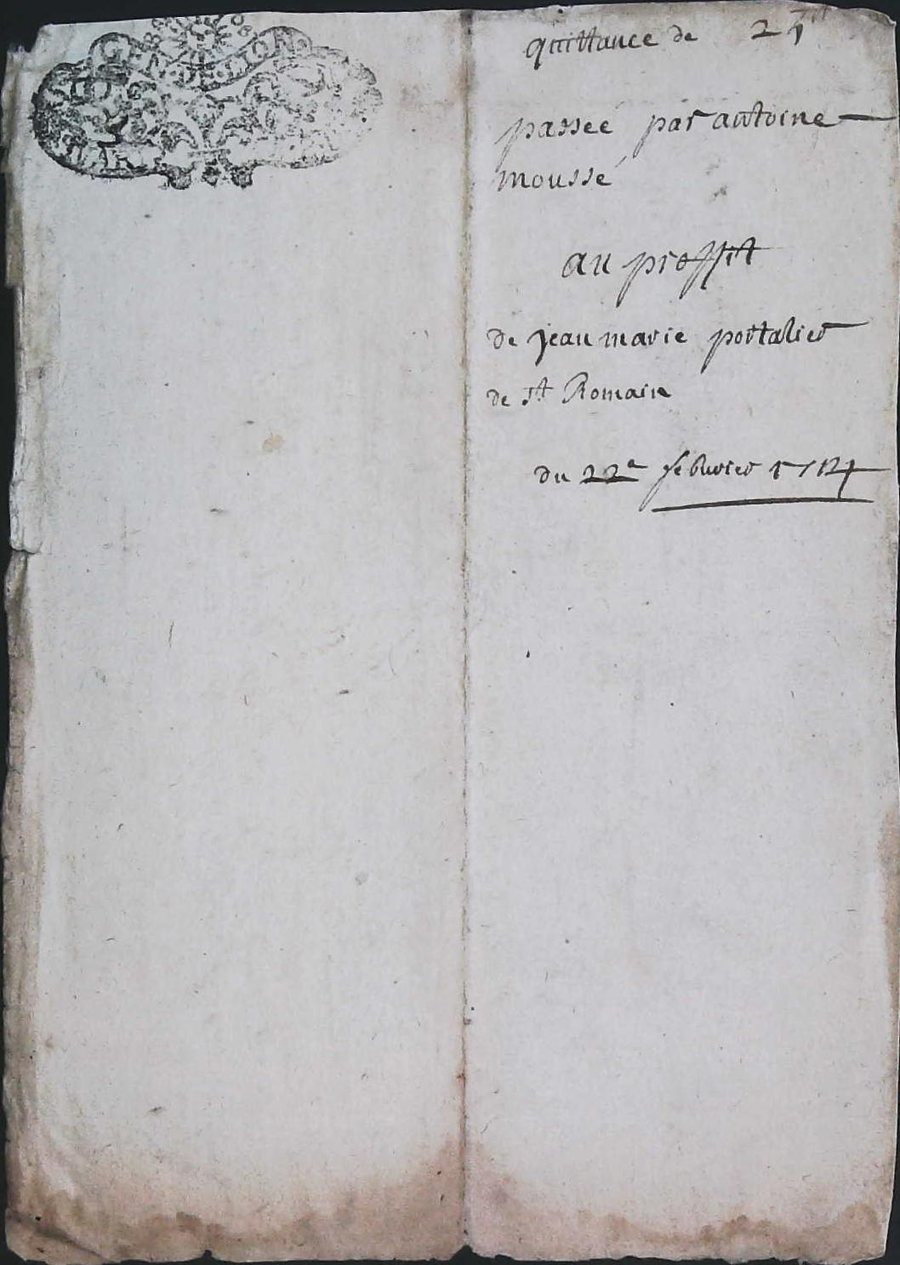 GEN·DE·LION
quittance de 24ᵗᵗ
passee par antoine
moussé
au proffit
de jean marie portalier
de sᵗ Romain
du 22ᵉ febvrier 1724